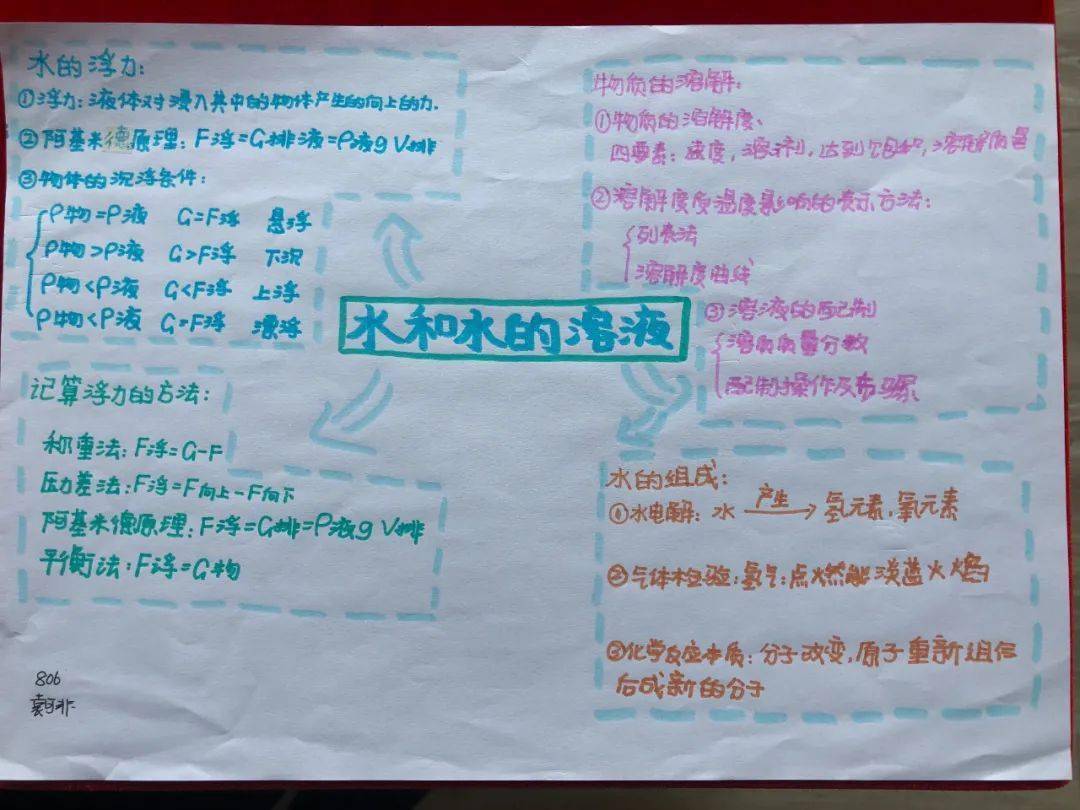 水的浮力:
①浮力:液体对浸入其中的物体产生的向上的力.
②阿基米德原理:F浮=G排液=ρ液gV排
③物体的沉浮条件:
ρ物=ρ液 G=F浮 悬浮
ρ物>ρ液 G>F浮 下沉
ρ物<ρ液 G<F浮 上浮
ρ物<ρ液 G=F浮 漂浮
记算浮力的方法:
称重法:F浮=G-F
压力差法:F浮=F向上-F向下
阿基米德原理:F浮=G排=ρ液gV排
平衡法:F浮=G物
水和水的溶液
物质的溶解:
①物质的溶解度、
四要素:速度,溶剂,达到饱和,溶解质量
②溶解度受温度影响的表示方法:
列表法
溶解度曲线
③溶液的配制
溶质质量分数
配制操作及步骤
水的组成:
①水电解:水 产生→ 氢元素,氧元素
②气体检验:氢气:点燃能淡蓝火焰
③化学反应本质:分子改变,原子重新组合
后成新的分子
806